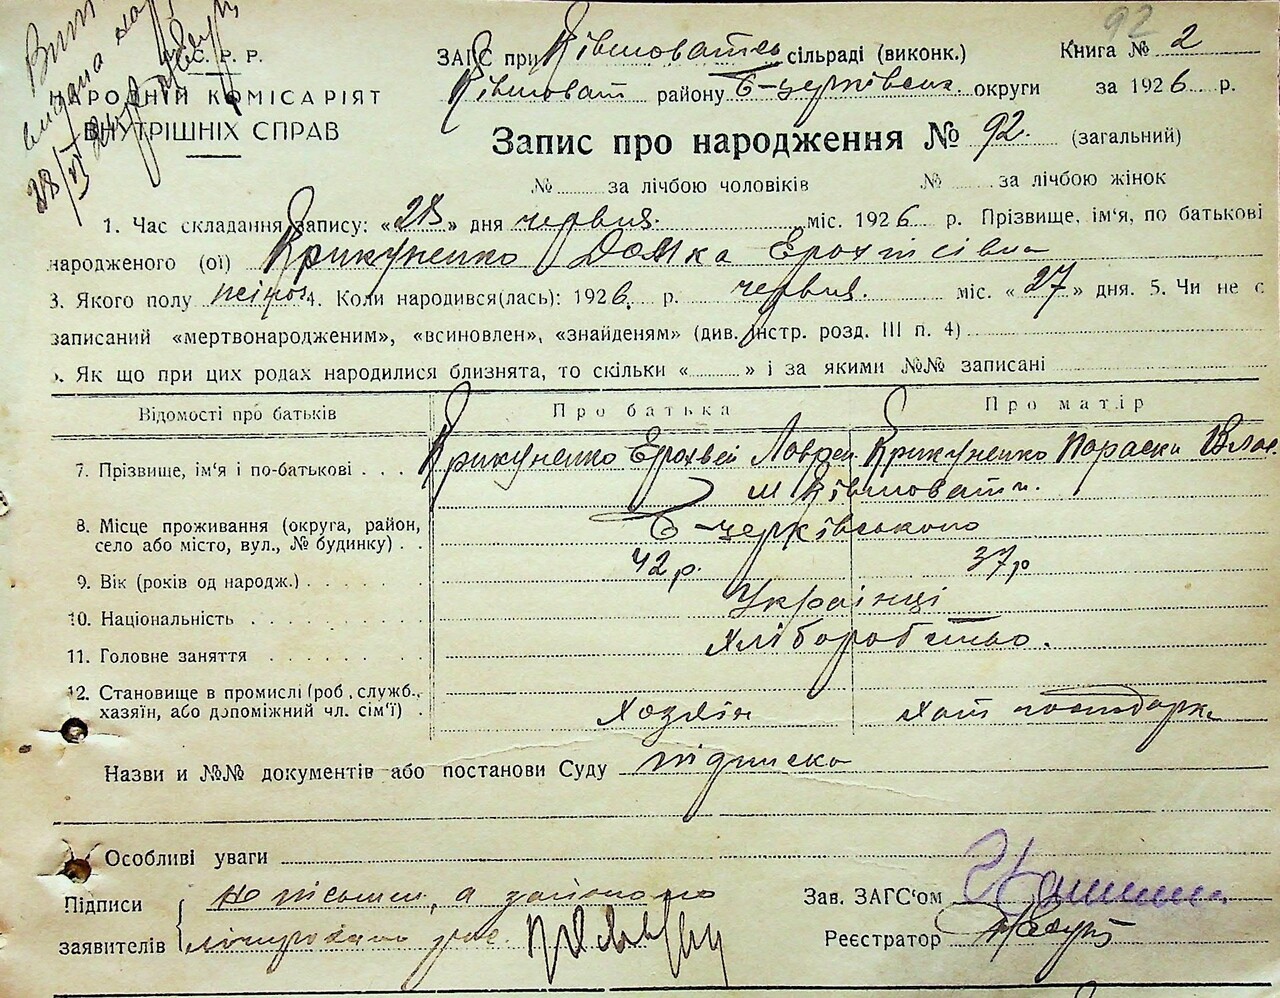 92
У.С.Р.Р.
НАРОДНІЙ КОМІСАРІЯТ
ВНУТРІШНІХ СПРАВ
28/VI
ЗАГС при Ківшоватсь сільраді (виконк.) Книга № 2
Ківшоват району Б-церківськ. округи за 1926 р.
Запис про народження № 92. (загальний)
№ ........ за лічбою чоловіків № ........ за лічбою жінок
1. Час складання запису: «28» дня червня. міс. 1926 р. Прізвище, ім'я, по батькові
народженого (ої) Крикуненко Домка Ерохтісівна
3. Якого полу 4. Коли народився(лась): 1926. р. червня. міс. «27» дня. 5. Чи не є
записаний «мертвонародженим», «всиновлен», «знайденям» (див. інстр. розд. III п. 4)
6. Як що при цих родах народилися близнята, то скільки «........» і за якими №№ записані
Відомості про батьків Про батька Про матір
7. Прізвище, ім'я і по-батькові . . . Крикуненко Ерохвей Лаврен Крикуненко Параска Влас.
м Ківшовати.
8. Місце проживання (округа, район,
село або місто, вул., № будинку) . . Б-церківського
9. Вік (років од народж.) . . . . . . 42 р. 37 р
10. Національність . . . . . . . . . Українці
11. Головне заняття . . . . . . . . Хліборобство.
12. Становище в промислі (роб., служб.,
хазяїн, або допоміжний чл. сім'ї) . Хозяїн Хат господарка
Назви и №№ документів або постанови Суду підписка
Особливі уваги
Підписи
заявителів
Зав. ЗАГС'ом
Реєстратор